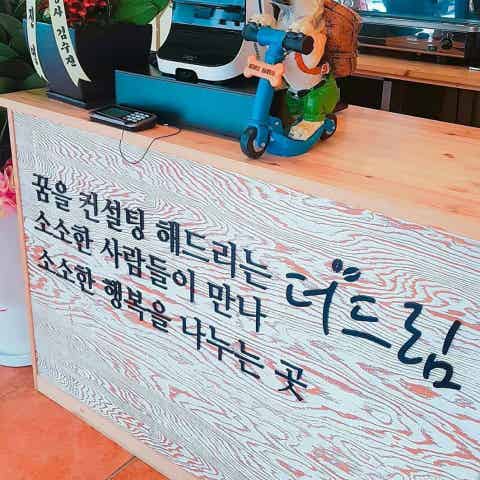 꿈을 컨설팅 해드리는
소소한 사람들이 만나
소소한 행복을 나누는 곳
더드림